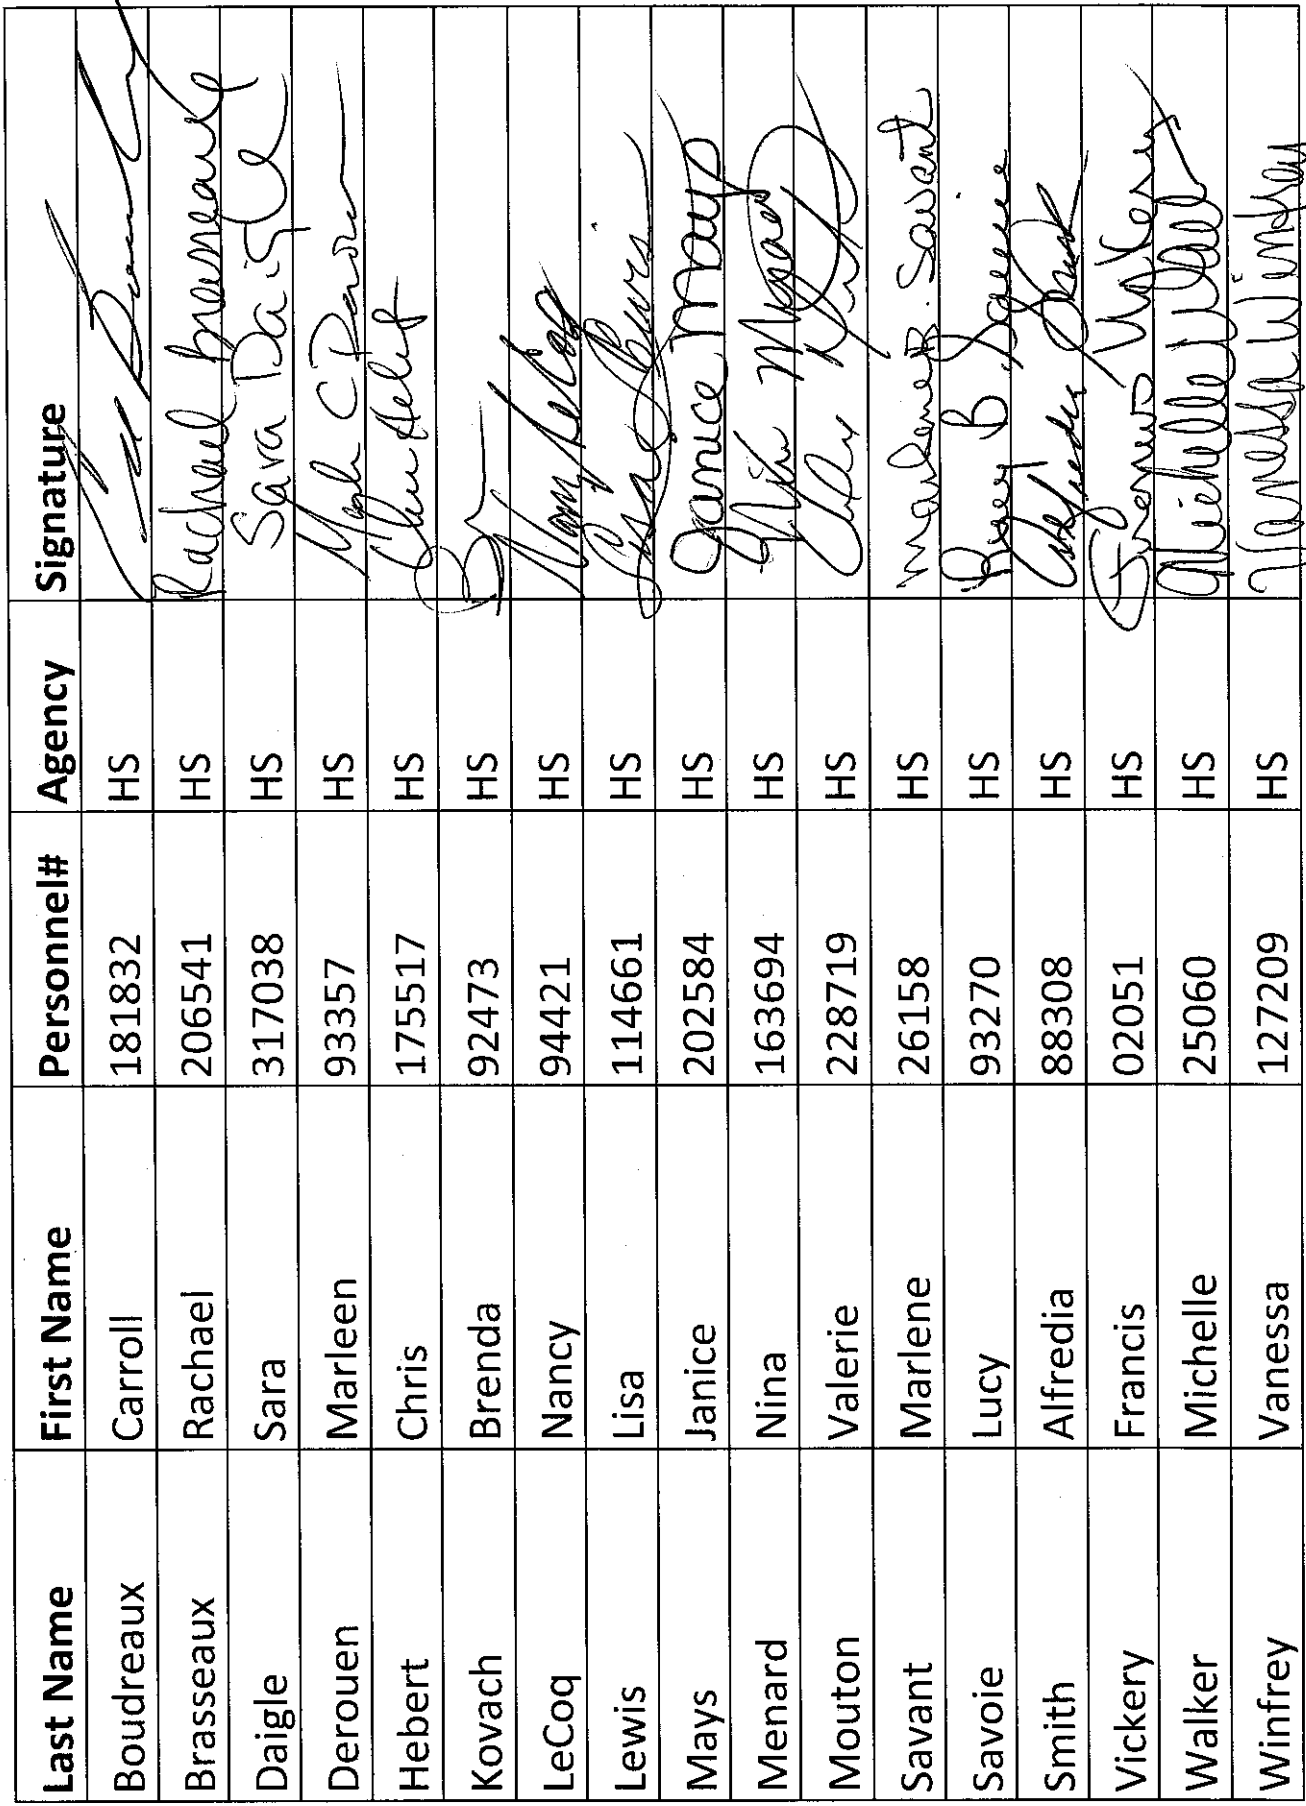 Last Name First Name Personnel# Agency Signature
Boudreaux Carroll 181832 HS
Brasseaux Rachael 206541 HS Rachael Brasseaux
Daigle Sara 317038 HS Sara Daigle
Derouen Marleen 93357 HS
Hebert Chris 175517 HS Chris Hebert
Kovach Brenda 92473 HS
LeCoq Nancy 94421 HS Nancy LeCoq
Lewis Lisa 114661 HS
Mays Janice 202584 HS Janice Mays
Menard Nina 163694 HS
Mouton Valerie 228719 HS
Savant Marlene 26158 HS Marlene B. Savant
Savoie Lucy 93270 HS Lucy B Savoie
Smith Alfredia 88308 HS Alfredia Smith
Vickery Francis 02051 HS
Walker Michelle 25060 HS Michelle Walker
Winfrey Vanessa 127209 HS Vanessa Winfrey